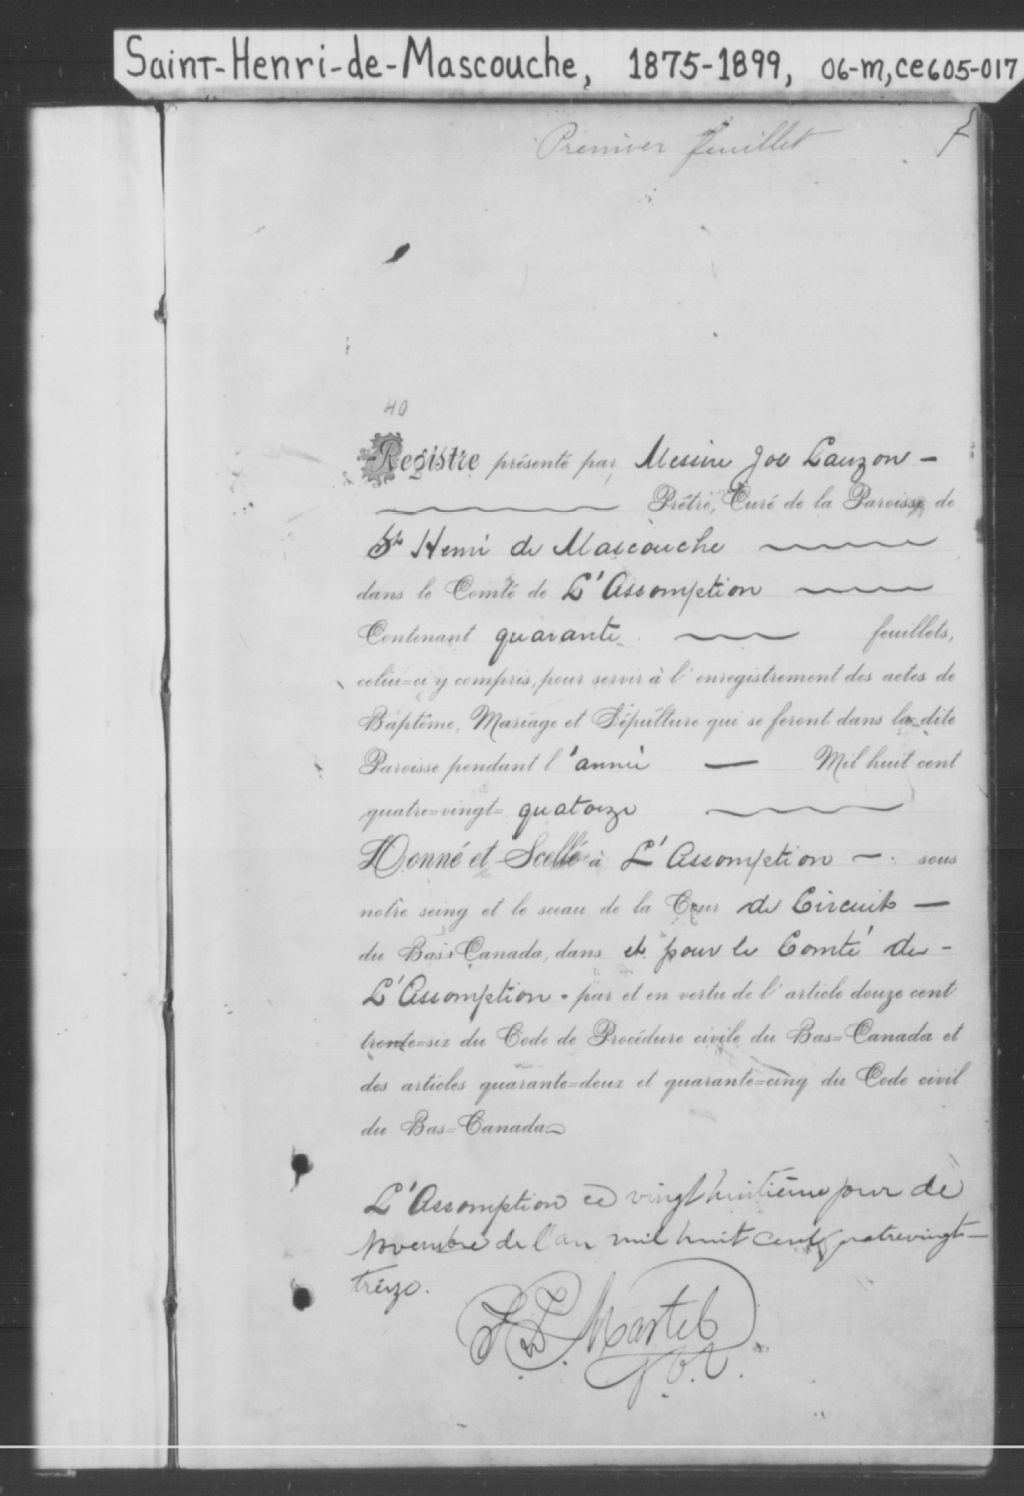 Saint-Henri-de-Mascouche, 1875-1899, 06-m,ce605-017
Premier feuillet
40
Registre présenté par Messire Jos Lauzon -
Prêtre, Curé de la Paroisse de
St Henri de Mascouche
dans le Comté de L'Assomption
Contenant quarante feuillets,
celui=ci y compris, pour servir à l'enregistrement des actes de
Baptême, Mariage et Sépulture qui se feront dans la dite
Paroisse pendant l'année — Mil huit cent
quatre=vingt= quatorze
Donné et Scellé à L'Assomption — sous
notre seing et le sceau de la Cour de Circuit —
du Bas=Canada, dans et pour le Comté de -
L'Assomption - par et en vertu de l'article douze cent
trente=six du Code de Procédure civile du Bas=Canada et
des articles quarante=deux et quarante=cinq du Code civil
du Bas=Canada
L'Assomption ce vingt huitième jour de
Novembre de l'an mil huit cent quatrevingt-
treize.
Martel